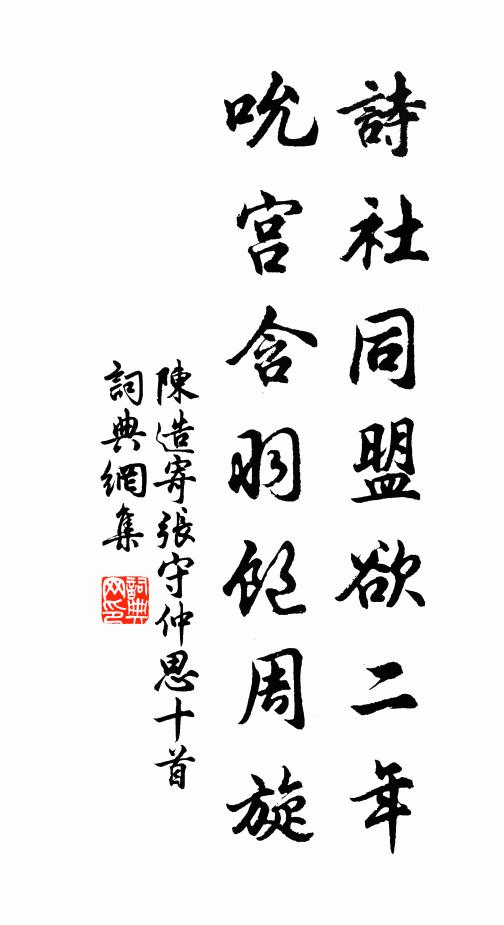 詩社同盟欲二年
吮宮含羽飽周旋
陳造寄張守仲思十首
詞典網集
詞典網印